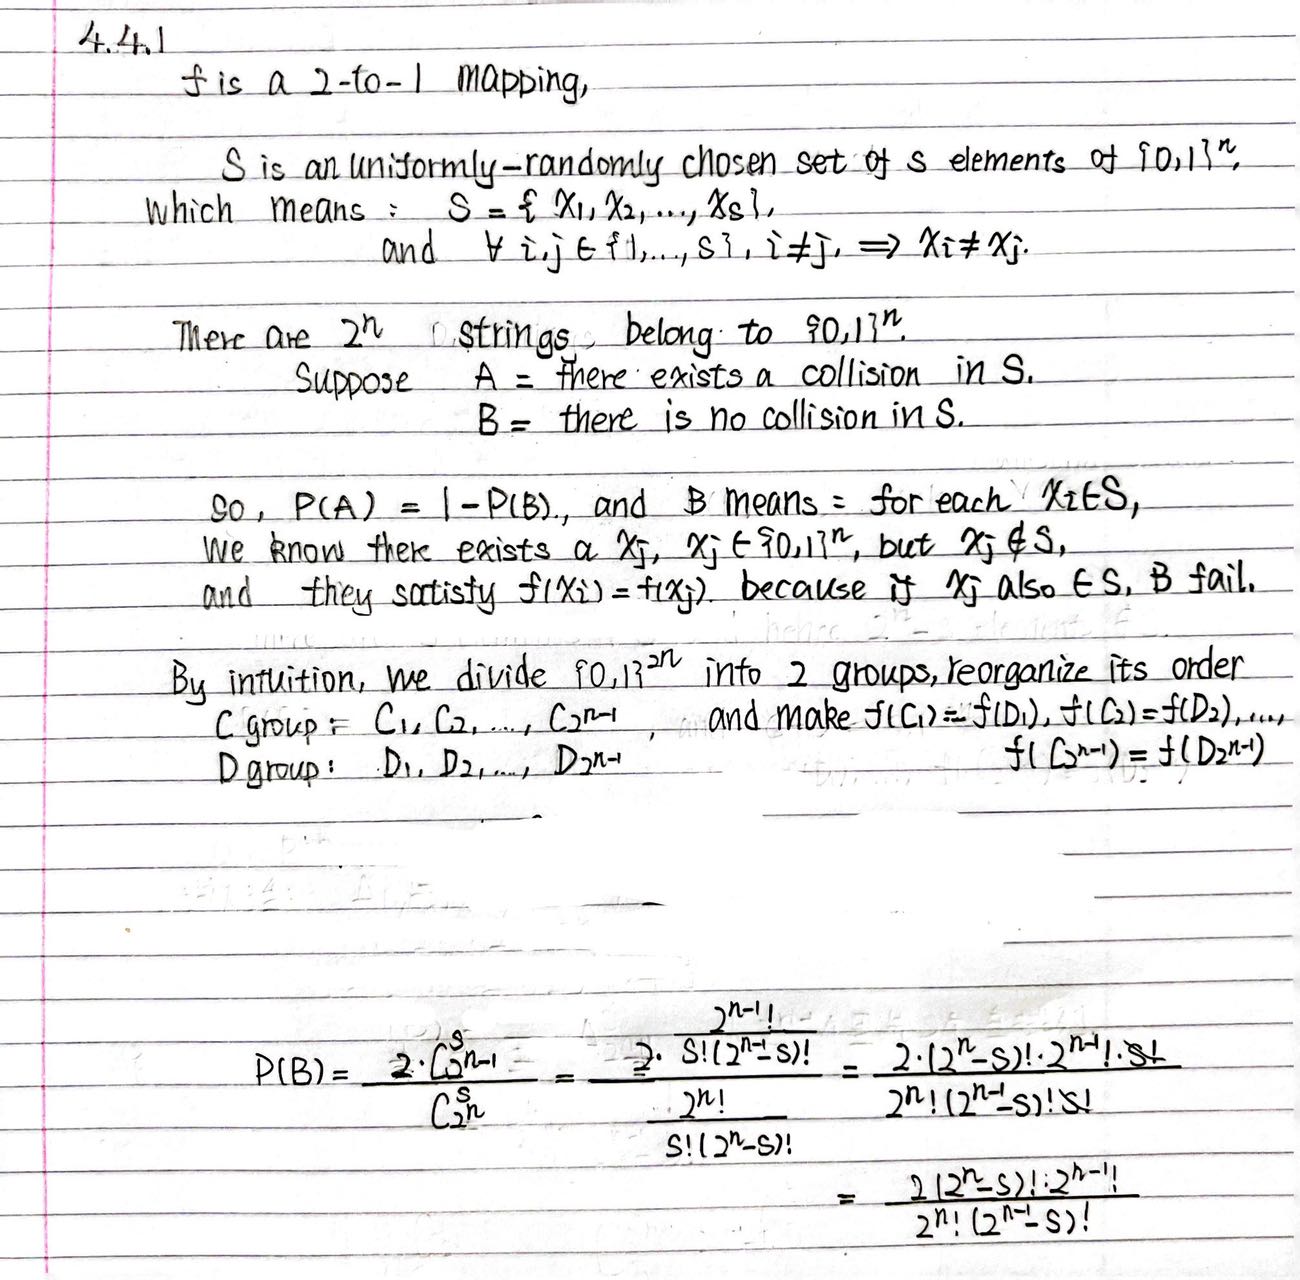 4.4.1
f is a 2-to-1 mapping,
S is an uniformly-randomly chosen set of s elements of {0,1}ⁿ,
which means: S = { x₁, x₂, ..., xₛ },
and ∀ i,j ∈ {1,...,s}, i≠j, ⇒ xᵢ ≠ xⱼ.
There are 2ⁿ strings belong to {0,1}ⁿ.
Suppose A = there exists a collision in S.
B = there is no collision in S.
So, P(A) = 1-P(B), and B means: for each xᵢ∈S,
we know there exists a xⱼ, xⱼ ∈ {0,1}ⁿ, but xⱼ ∉ S,
and they satisfy f(xᵢ) = f(xⱼ). because if xⱼ also ∈ S, B fail.
By intuition, we divide {0,1}²ⁿ into 2 groups, reorganize its order
C group: C₁, C₂, ..., C_{2^{n-1}}, and make f(C₁) = f(D₁), f(C₂) = f(D₂), ...,
D group: D₁, D₂, ..., D_{2^{n-1}} f(C_{2^{n-1}}) = f(D_{2^{n-1}})
P(B) = \frac{2·C^{s}_{2^{n-1}}}{C^{s}_{2^{n}}} = \frac{2·\frac{2^{n-1}!}{s!(2^{n-1}-s)!}}{\frac{2^{n}!}{s!(2^{n}-s)!}} = \frac{2·(2^{n}-s)!·2^{n-1}!·s!}{2^{n}!(2^{n-1}-s)!s!}
= \frac{2(2^{n}-s)!·2^{n-1}!}{2^{n}!(2^{n-1}-s)!}